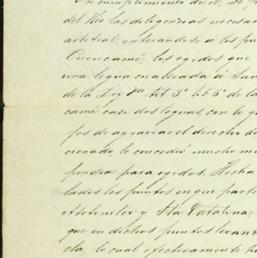 En cumplimiento de el, se p
del Rio las diligencias necesa
arbitral, enterandose á los pu
Cuencamé, los egidos que
una legua cuadrada á San
de la Ley 8ª tit. 3º lib 6º de la
camé casi dos leguas, con lo q
pos de agraviar el derecho de
cionado, le concedió mucho m
pondia para egidos. Hecha
lados los puntos en que parte
Atotonilco y Sta Catalina,
que en dichos puntos levant
cla, lo cual efectivamente hi